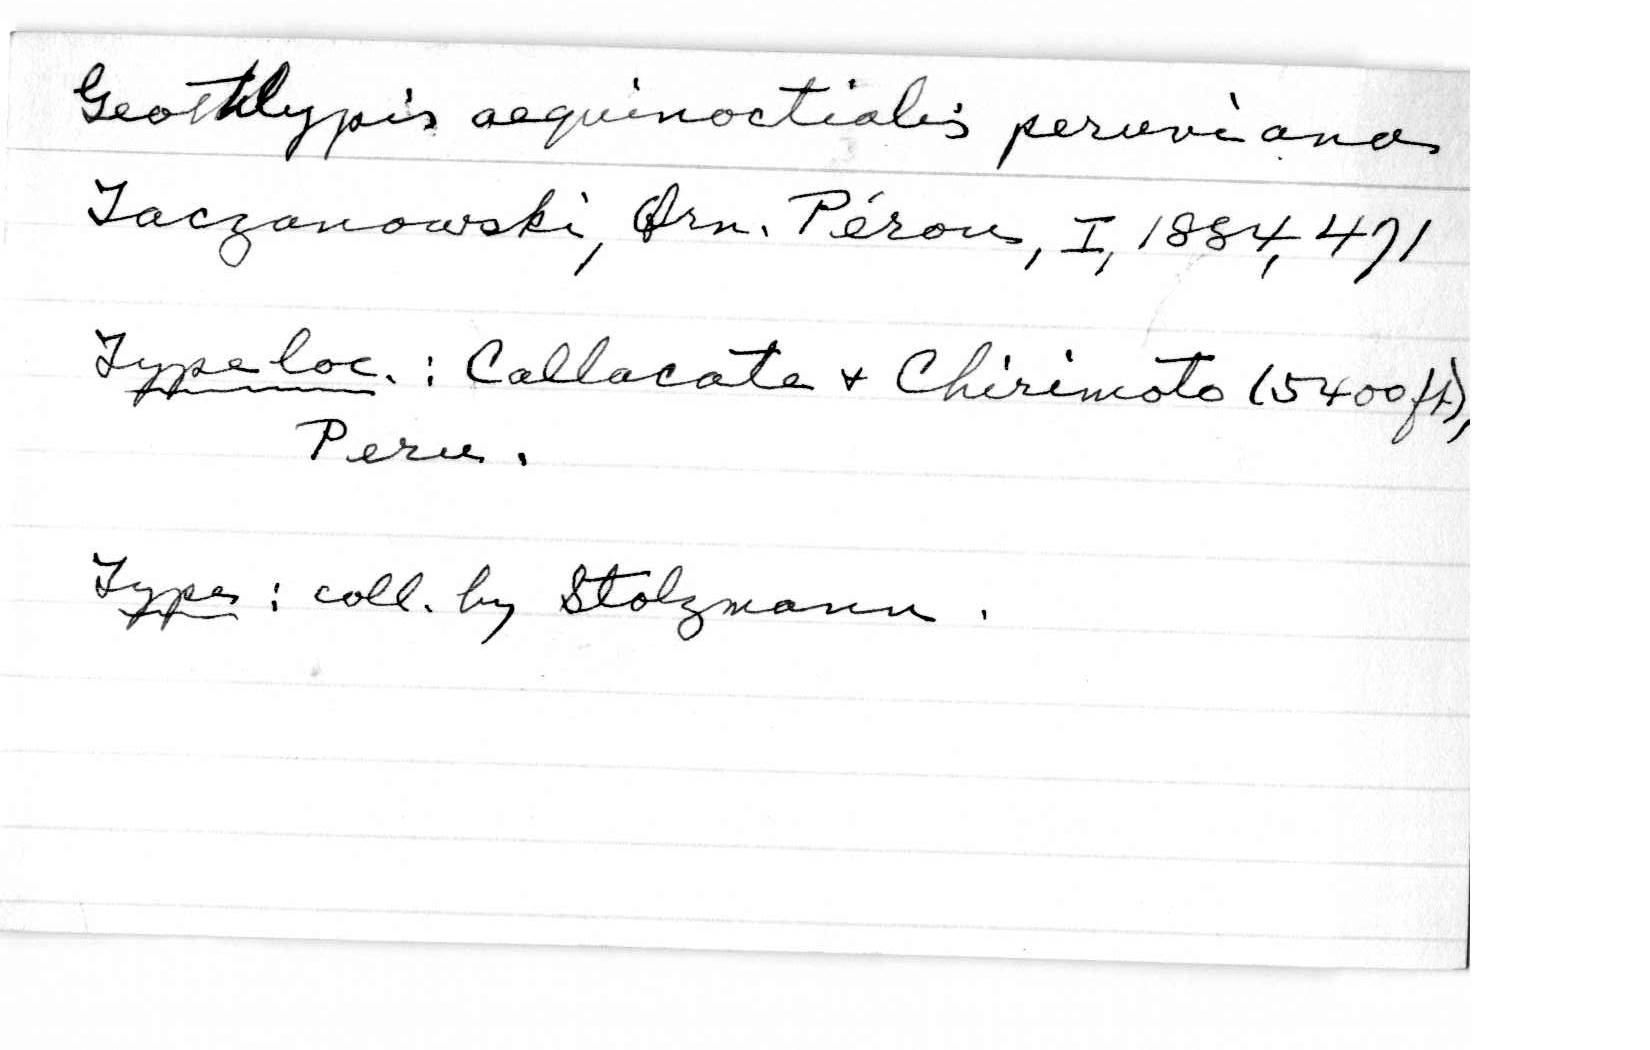 Geothlypis aequinoctialis peruviana
Taczanowski, Orn. Pérou, I, 1884, 471
Type loc. : Callacate + Chirimoto (5400 ft),
Peru.
Types : coll. by Stolzmann.